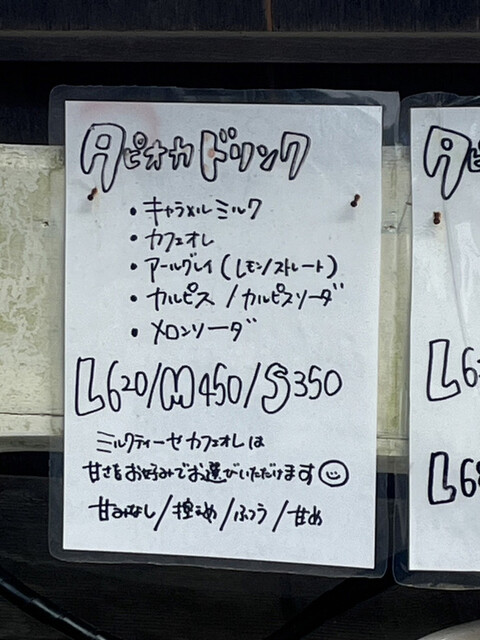 タピオカドリンク
・キャラメルミルク
・カフェオレ
・アールグレイ(レモン/ストレート)
・カルピス/カルピスソーダ
・メロンソーダ
L620/M450/S350
ミルクティーせカフェオレは
甘さをお好みでお選びいただけます
甘みなし/控え め/ふつう/甘め
タピ
L6
L68